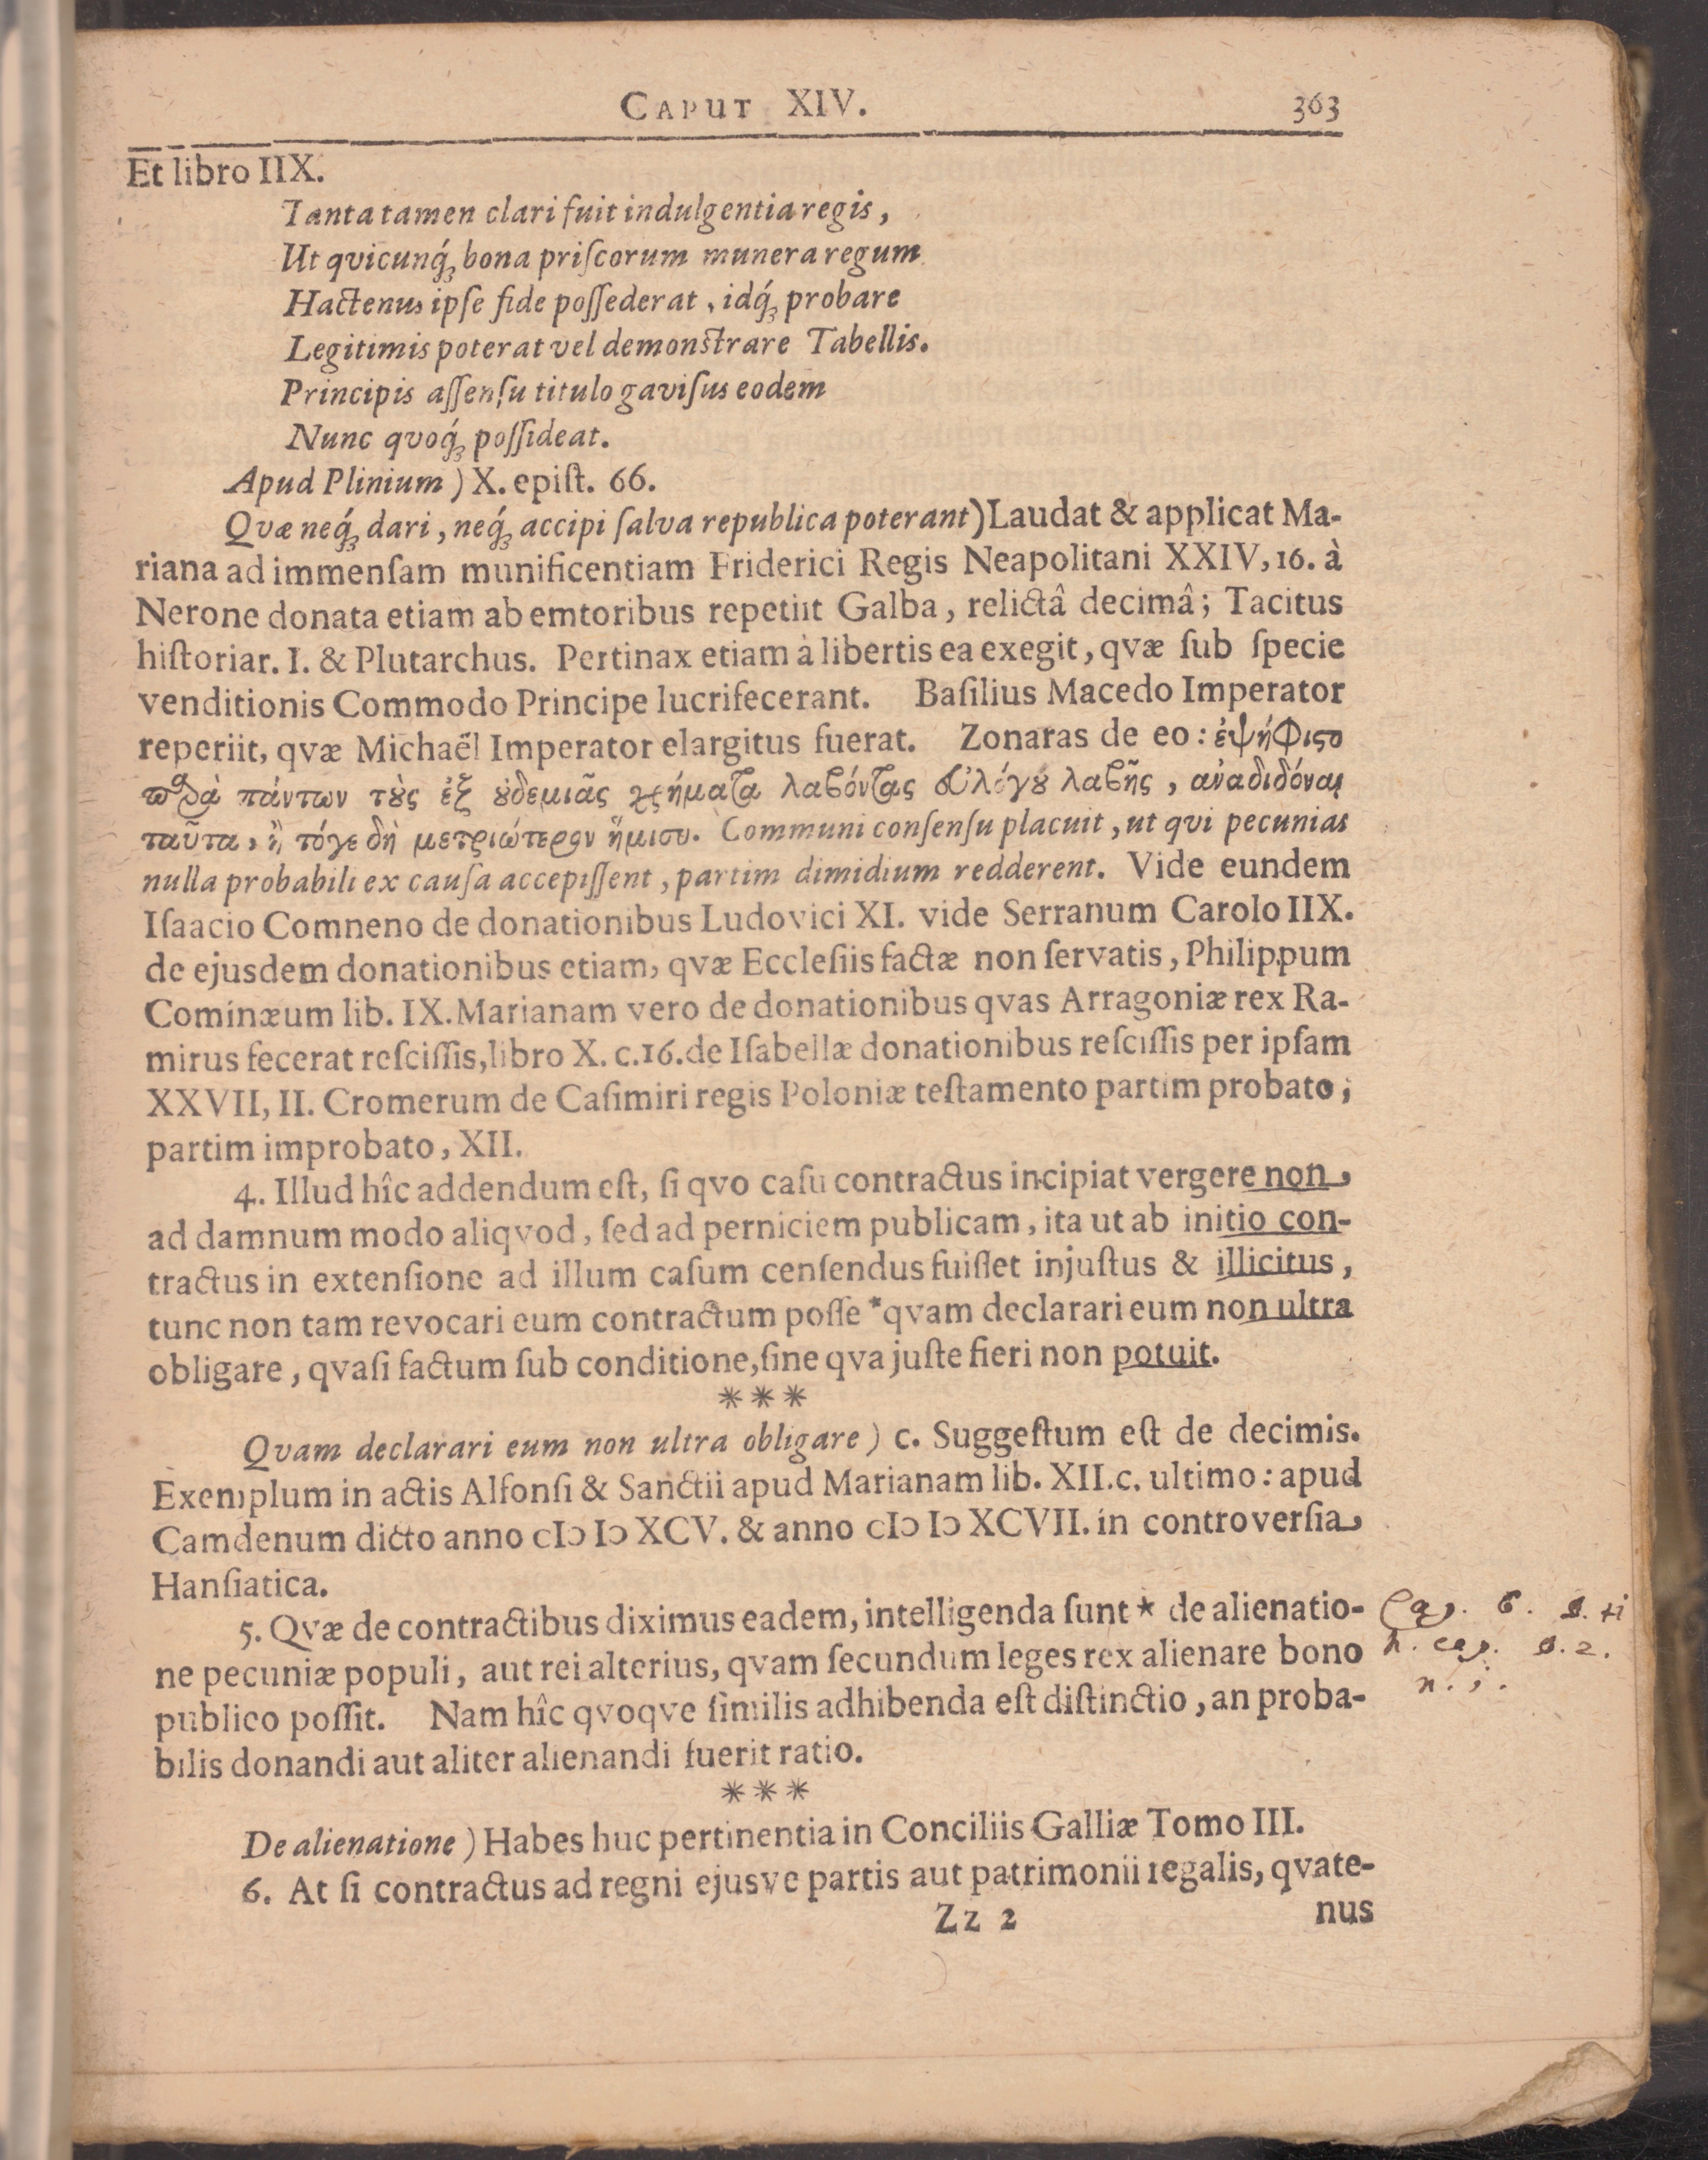 CAPUT XIV. 363
Et libro IIX.
Tanta tamen clari fuit indulgentia regis,
Ut qvicunq́ꝫ bona priſcorum munera regum
Hactenus ipſe fide poſſederat, idq́ꝫ probare
Legitimis poterat vel demonſtrare Tabellis.
Principis aſſenſu titulo gaviſus eodem
Nunc qvoq́ꝫ poſſideat.
Apud Plinium) X. epiſt. 66.
Qvæ neq́ꝫ dari, neq́ꝫ accipi ſalva republica poterant) Laudat & applicat Ma-
riana ad immenſam munificentiam Friderici Regis Neapolitani XXIV, 16. à
Nerone donata etiam ab emtoribus repetiit Galba, relictâ decimâ; Tacitus
hiſtoriar. I. & Plutarchus. Pertinax etiam à libertis ea exegit, qvæ ſub ſpecie
venditionis Commodo Principe lucrifecerant. Baſilius Macedo Imperator
reperiit, qvæ Michaël Imperator elargitus fuerat. Zonaras de eo: ἐψήφιςο
παρὰ πάντων τοὺς ἐξ οὐδεμιᾶς χρήματα λαβόντας εὐλόγου λαβῆς, ἀναδιδόναι
ταῦτα, ἢ τόγε δὴ μετριώτερον ἥμισυ. Communi conſenſu placuit, ut qvi pecunias
nulla probabili ex cauſa accepiſſent, partim dimidium redderent. Vide eundem
Iſaacio Comneno de donationibus Ludovici XI. vide Serranum Carolo IIX.
de ejusdem donationibus etiam, qvæ Eccleſiis factæ non ſervatis, Philippum
Cominæum lib. IX. Marianam vero de donationibus qvas Arragoniæ rex Ra-
mirus fecerat reſciſſis, libro X. c. 16. de Iſabellæ donationibus reſciſſis per ipſam
XXVII, II. Cromerum de Caſimiri regis Poloniæ teſtamento partim probato;
partim improbato, XII.
4. Illud hîc addendum eſt, ſi qvo caſu contractus incipiat vergere non
ad damnum modo aliqvod, ſed ad perniciem publicam, ita ut ab initio con-
tractus in extenſione ad illum caſum cenſendus fuiſſet injuſtus & illicitus,
tunc non tam revocari eum contractum poſſe *qvam declarari eum non ultra
obligare, qvaſi factum ſub conditione, ſine qva juſte fieri non potuit.
***
Qvam declarari eum non ultra obligare) c. Suggeſtum eſt de decimis.
Exemplum in actis Alfonſi & Sanctii apud Marianam lib. XII. c. ultimo: apud
Camdenum dicto anno cIↄ Iↄ XCV. & anno cIↄ Iↄ XCVII. in controverſia
Hanſiatica.
5. Qvæ de contractibus diximus eadem, intelligenda ſunt * de alienatio-
ne pecuniæ populi, aut rei alterius, qvam ſecundum leges rex alienare bono
publico poſſit. Nam hîc qvoqve ſimilis adhibenda eſt diſtinctio, an proba-
bilis donandi aut aliter alienandi fuerit ratio.
***
De alienatione) Habes huc pertinentia in Conciliis Galliæ Tomo III.
6. At ſi contractus ad regni ejusve partis aut patrimonii regalis, qvate-
Zz 2 nus